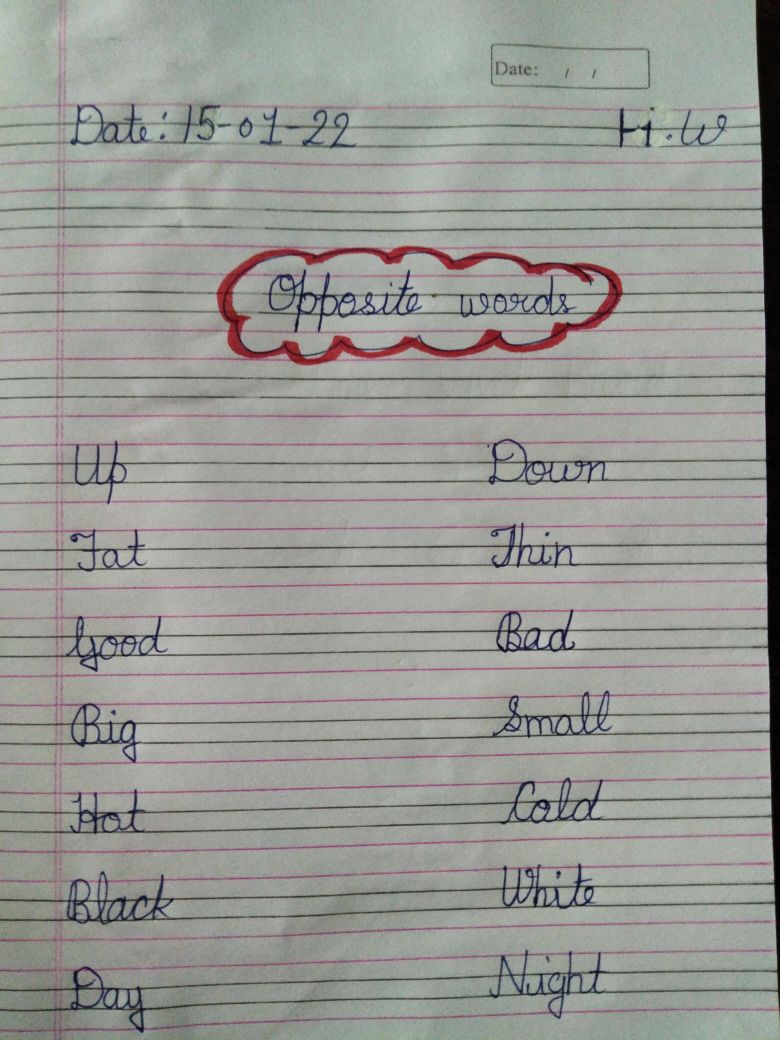 Date: / /
Date: 15-01-22 H.W
Opposite words
Up Down
Fat Thin
Good Bad
Big Small
Hot Cold
Black White
Day Night